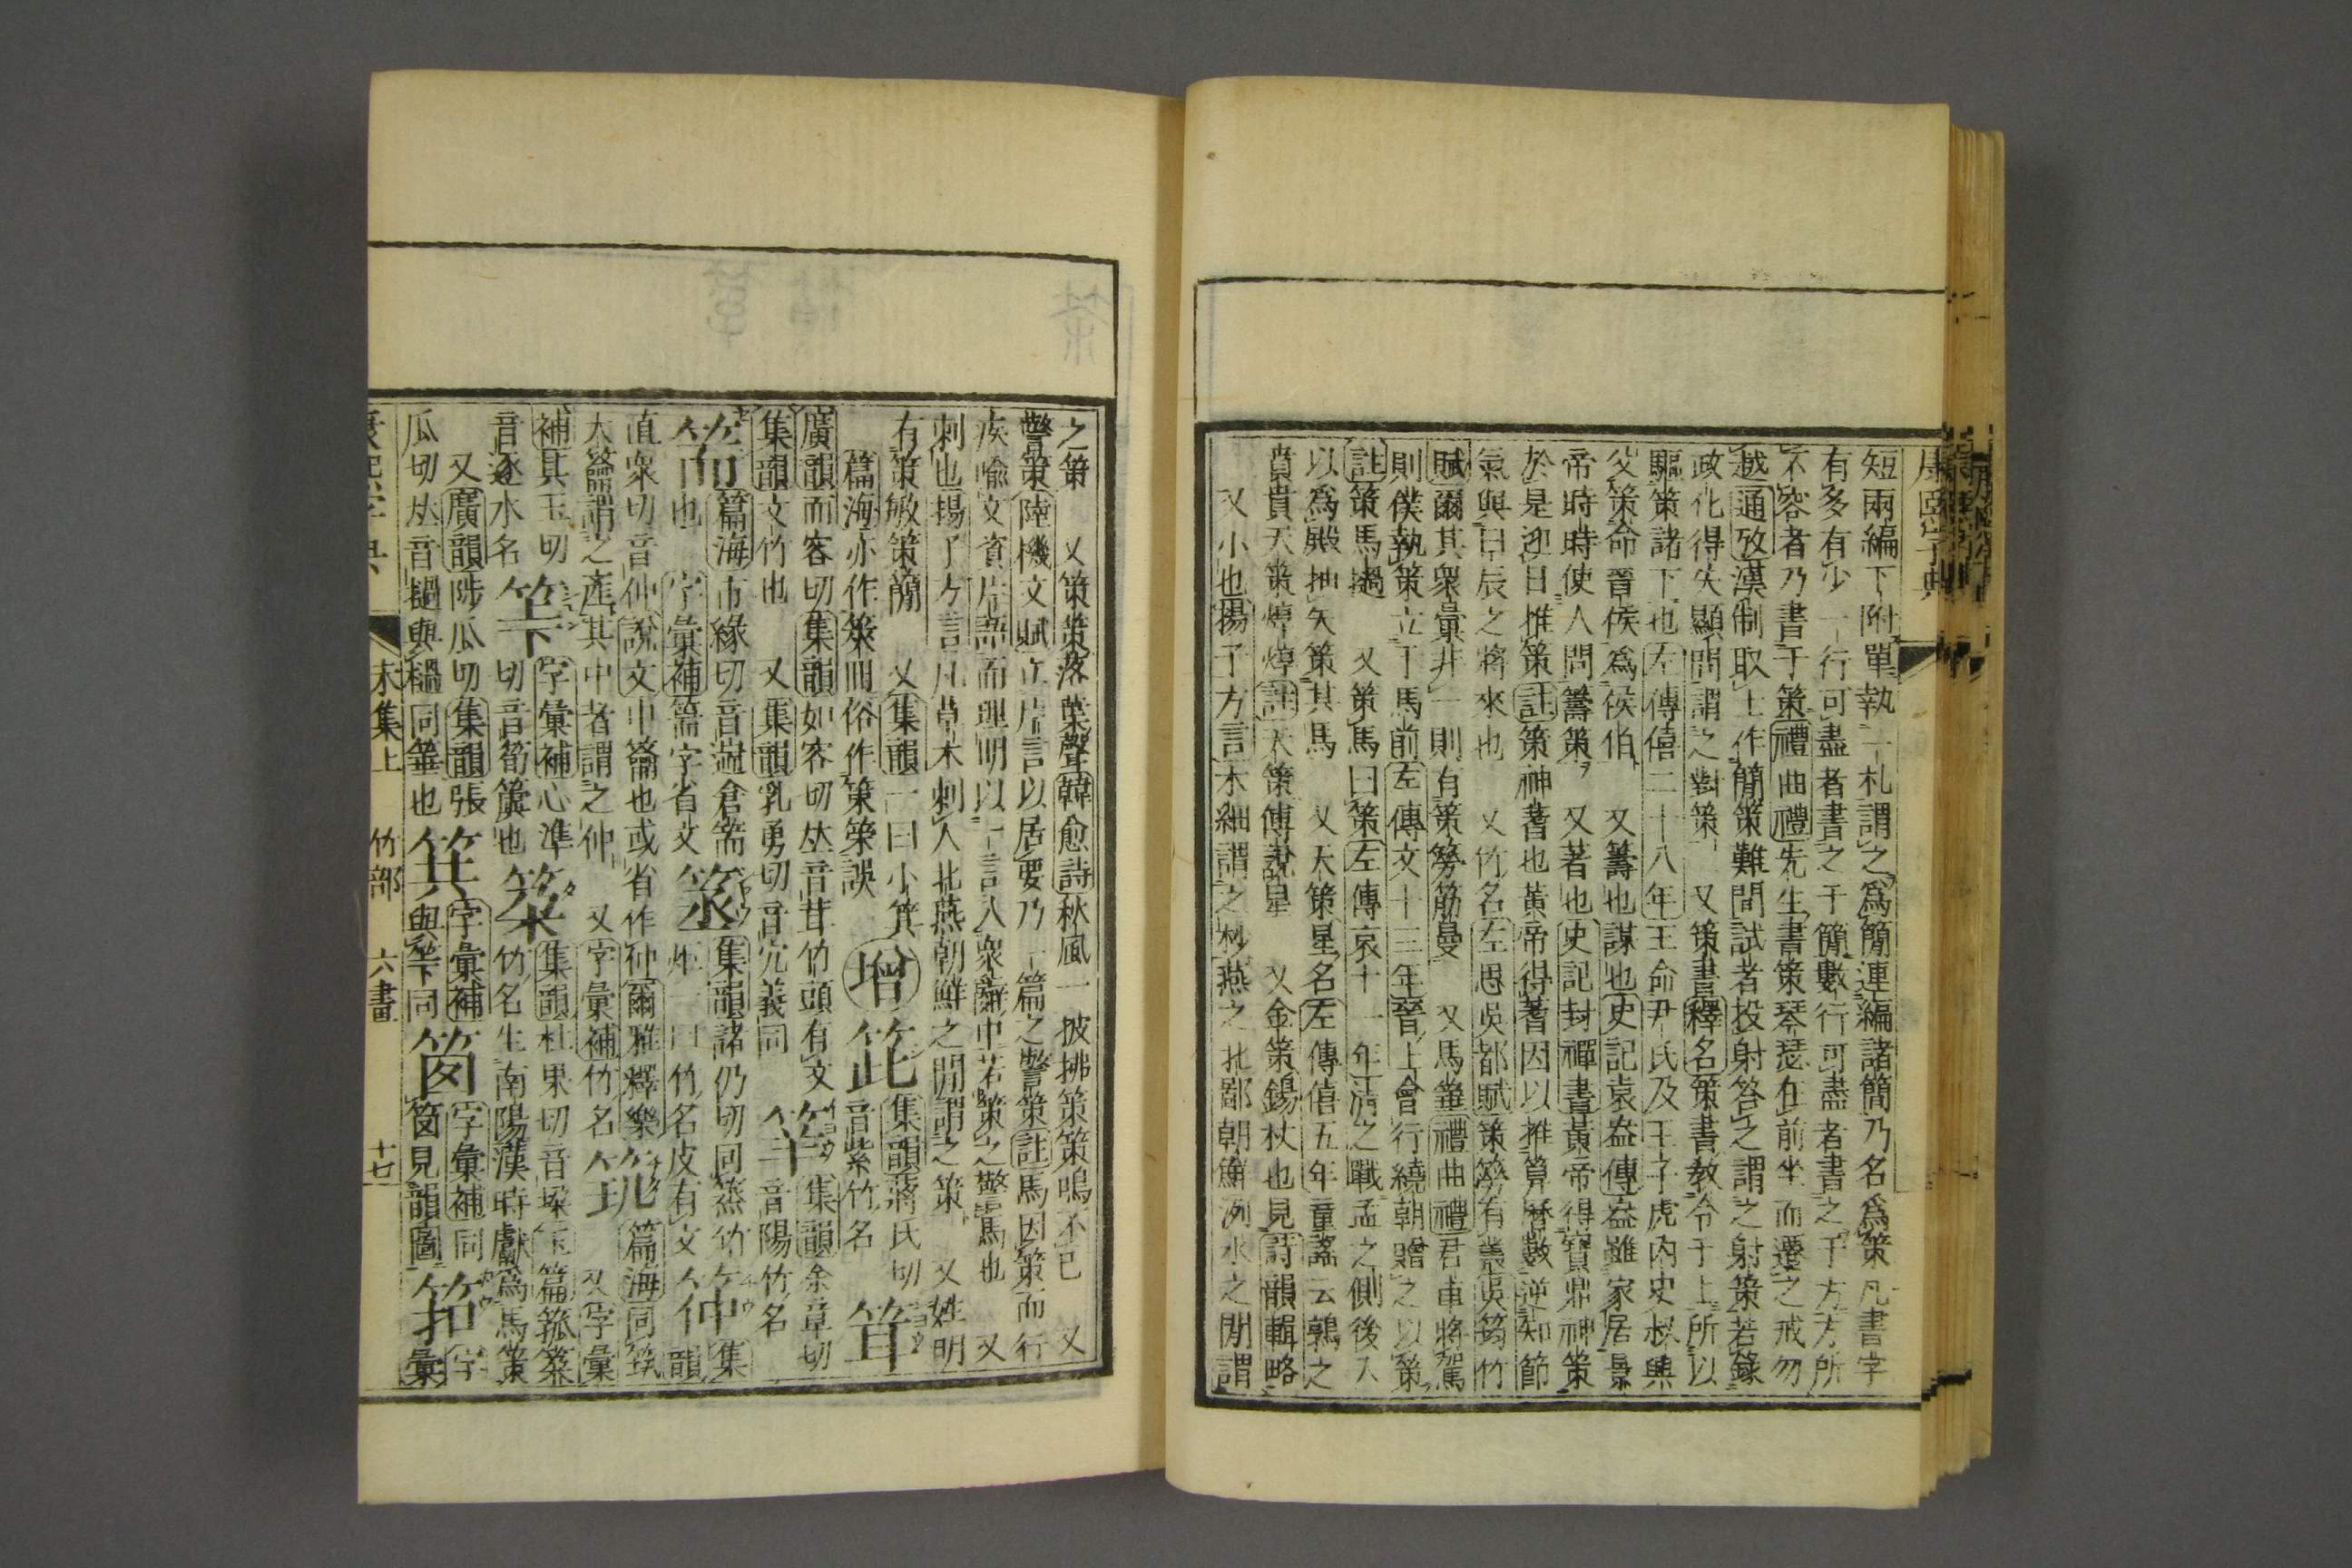 康熙字典
短兩編下附單執一札謂之爲簡連編諸簡乃名爲策凡書字
有多有少一行可盡者書之于簡數行可盡者書之于方方所
不容者乃書于策禮曲禮先生書策琴瑟在前坐而遷之戒勿
越通攷漢制取士作簡策難問試者投射答之謂之射策若錄
政化得失顯問謂之對策 又策書釋名策書教令于上所以
驅策諸下也左傳僖二十八年王命尹氏及王子虎內史叔興
父策命晉侯爲侯伯 又籌也謀也史記袁盎傳盎雖家居景
帝時時使人問籌策 又蓍也史記封禪書黃帝得寶鼎神策
於是迎日推策註策神蓍也黃帝得蓍因以推算曆數逆知節
氣與日辰之將來也 又竹名左思吳都賦策簩有叢吳筠竹
賦爾其衆彙非一則有策簩筋曼 又馬箠禮曲禮君車將駕
則僕執策立于馬前左傳文十三年晉上會行繞朝贈之以策
註策馬撾 又策馬曰策左傳哀十一年淸之戰孟之側後入
以爲殿抽矢策其馬 又天策星名左傳僖五年童謠云鶉之
賁賁天策焞焞註天策傳說星 又金策錫杖也見詩韻輯略
又小也揚子方言木細謂之杪燕之北鄙朝鮮洌水之閒謂
之策 又策策落葉聲韓愈詩秋風一披拂策策鳴不已 又
警策陸機文賦立片言以居要乃一篇之警策註馬因策而行
疾喻文資片語而理明以一言入衆辭中若策之警馬也 又
刺也揚子方言凡草木刺人北燕朝鮮之閒謂之策 又姓明
有策敏策簡 又集韻一曰小箕
篇海亦作筞㗊俗作策筞誤 增 筂 集韻蔣氏切音紫竹名 笧
廣韻而容切集韻如容切𠀤音茸竹頭有文 筜 集韻余章切
集韻文竹也 又集韻乳勇切音宂義同 音陽竹名
篅 篇海市緣切音遄倉篅也 字彙補篅字省文 䇰 集韻諸仍切同䉀竹炬一曰竹名皮有文 筗 集韻
直衆切音仲說文中籥也或省作仲爾雅釋樂 筑 篇海同筑
大籥謂之產其中者謂之仲 又字彙補竹名 又字彙
補其玉切
音逐水名 笇 字彙補心準切音筍簨也 築 集韻杜果切音垜玉篇箛築竹名生南陽漢時獻爲馬策
又廣韻陟瓜切集韻張
瓜切𠀤音撾與檛同箠也 箕 字彙補與笇同 筃 字彙補同䇫見韻圖 筘 字彙
康熙字典 未集上 竹部 六畫 十七